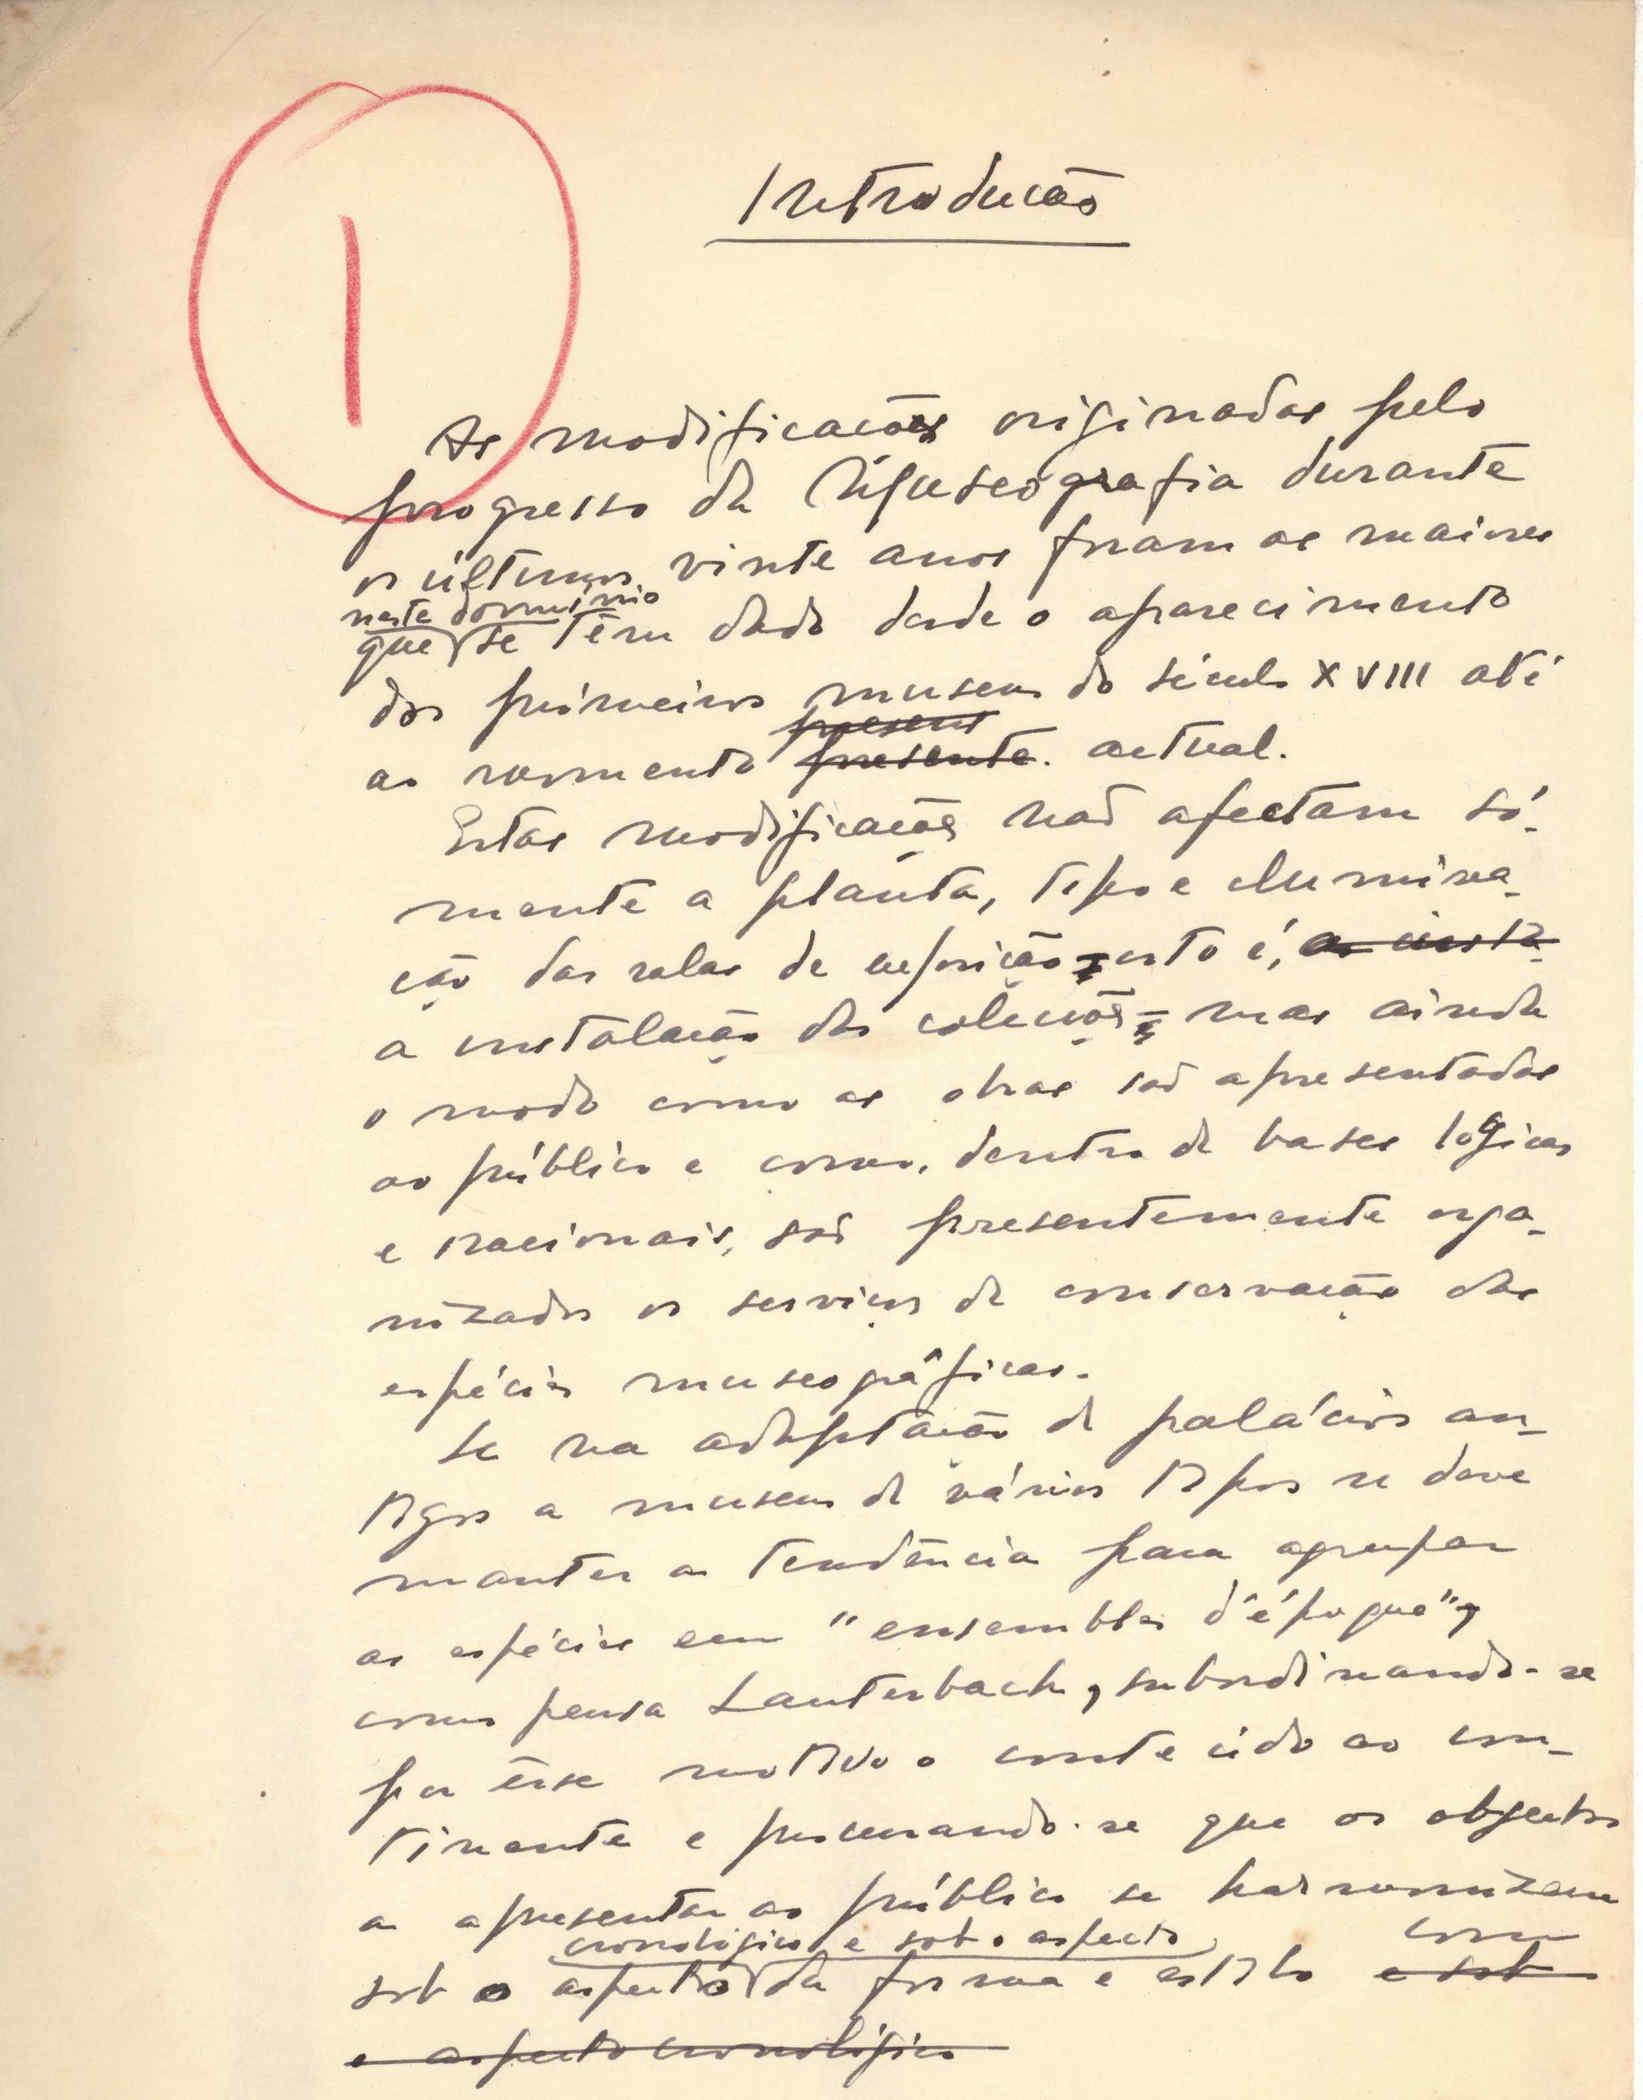 1
Introdução
As modificações originadas pelo
progresso da Museografia durante
os últimos vinte anos foram as maiores
neste domínio
que se têm dado desde o aparecimento
dos primeiros museus do século XVIII até
present
ao momento presente. actual.
Estas modificações não afectam só-
mente a planta, tipo e ilumina-
ção das salas de exposição, isto é, as insta
a instalação das colecções, mas ainda
o modo como as obras são apresentadas
ao público e como, dentro de bases lógicas
e racionais, são presentemente orga-
nizados os serviços de conservação das
espécies museográficas.
Se na adaptação de palácios an-
tigos a museus de vários tipos se deve
manter a tendência para agrupar
as espécies em "ensembles d'époque",
como pensa Lauterbach, subordinando-se
por êsse motivo o conteúdo ao con-
tinente e procurando-se que os objectos
a apresentar ao público se harmonizem
cronológico e sob o aspecto com
sob o aspecto da forma e estilo e sob
o aspecto cronológico